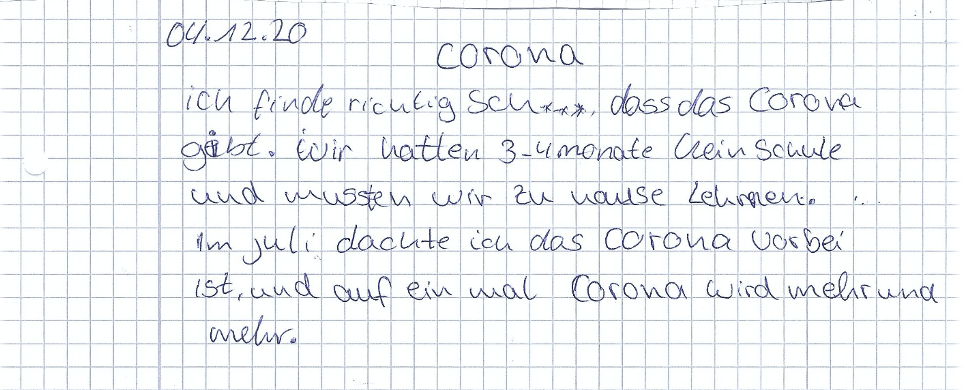 04.12.20
Corona
ich finde richtig Sch****, dass das Corona
gibt. Wir hatten 3-4 monate kein Schule
und mussten wir zu hause Lehrnen.
Im juli dachte ich das Corona vorbei
ist, und auf ein mal Corona wird mehr und
mehr.